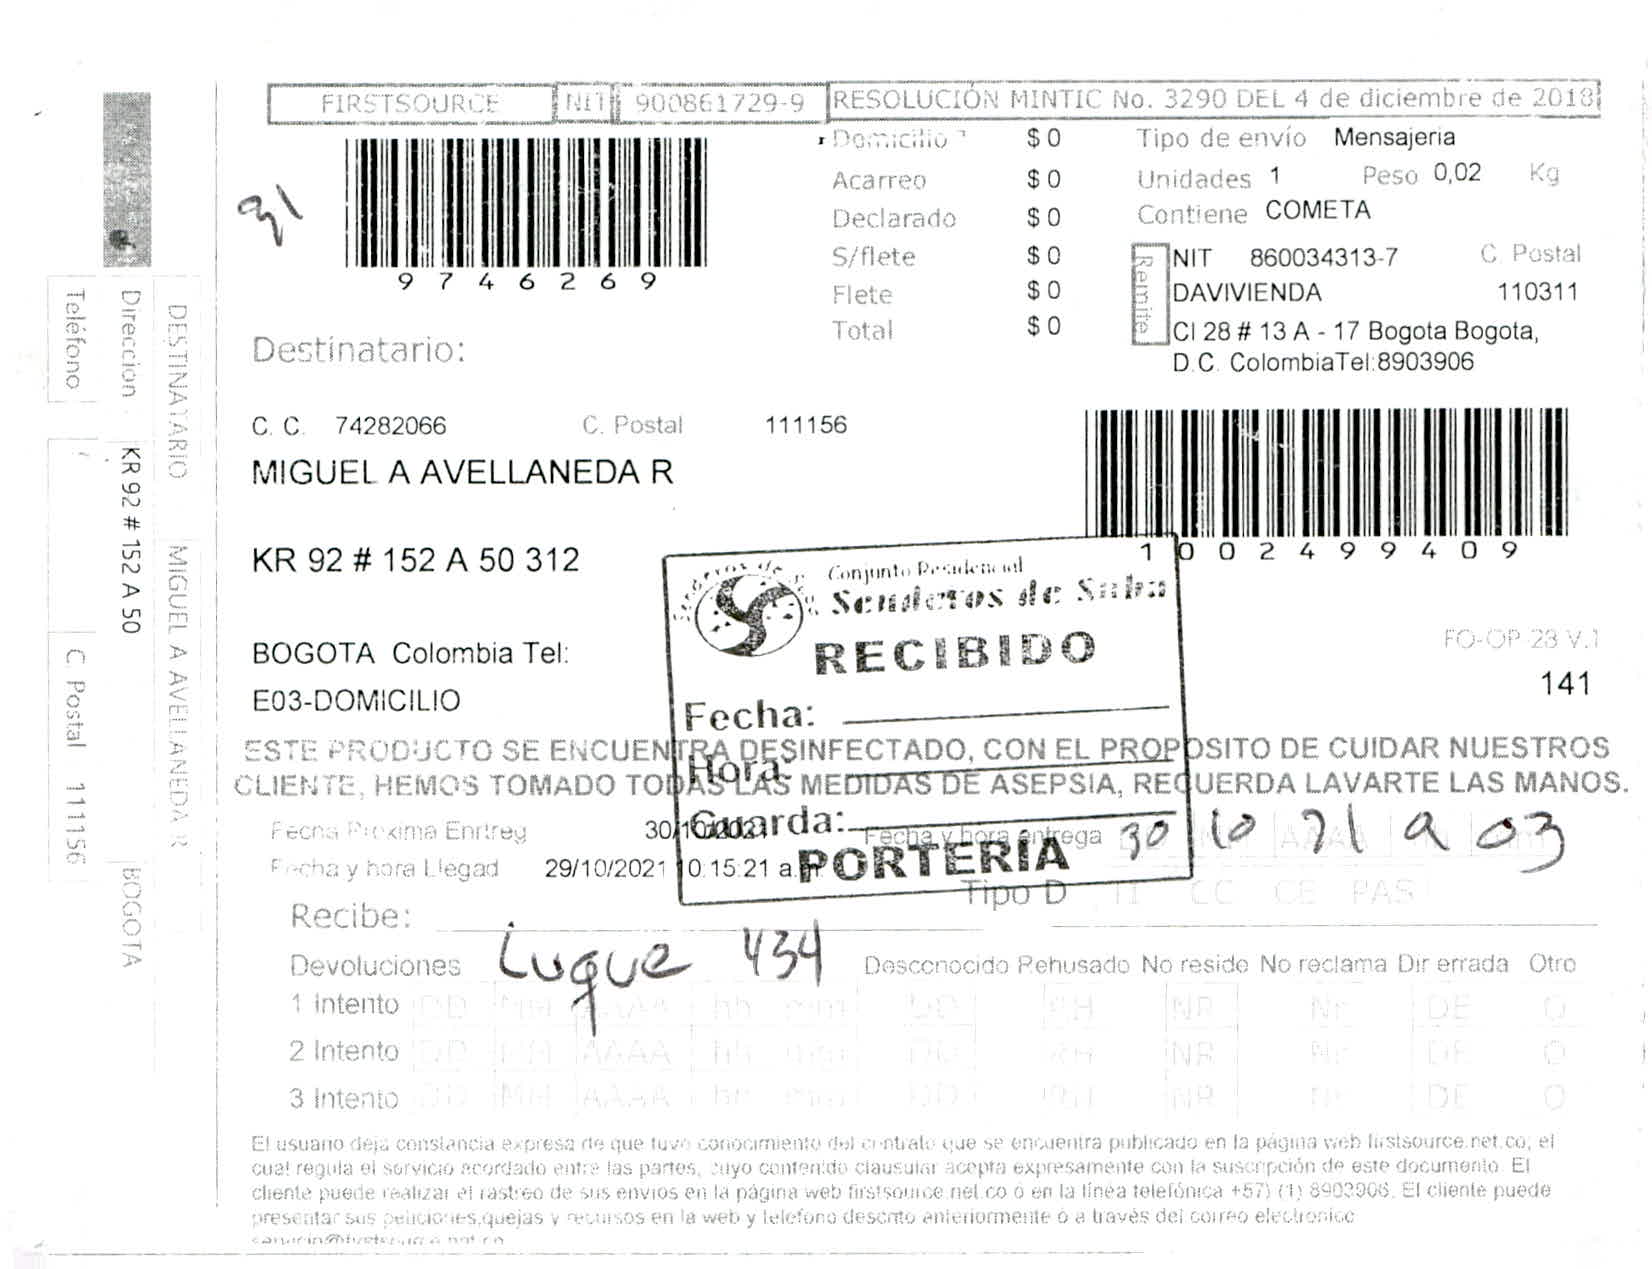 FIRSTSOURCE NIT 900861729-9 RESOLUCIÓN MINTIC No. 3290 DEL 4 de diciembre de 2018
91
9746269
Domicilio $ 0
Acarreo $ 0
Declarado $ 0
S/flete $ 0
Flete $ 0
Total $ 0
Tipo de envío Mensajeria
Unidades 1 Peso 0,02 Kg
Contiene COMETA
Remite
NIT 860034313-7 C. Postal
DAVIVIENDA 110311
Cl 28 # 13 A - 17 Bogota Bogota,
D.C. ColombiaTel:8903906
Destinatario:
C. C. 74282066 C. Postal 111156
MIGUEL A AVELLANEDA R
1002499409
KR 92 # 152 A 50 312
BOGOTA Colombia Tel:
E03-DOMICILIO
FO-OP 23 V.1
141
Conjunto Residencial
Senderos de Suba
RECIBIDO
Fecha:
Hora:
Guarda:
PORTERIA
ESTE PRODUCTO SE ENCUENTRA DESINFECTADO, CON EL PROPOSITO DE CUIDAR NUESTROS
CLIENTE, HEMOS TOMADO TODAS LAS MEDIDAS DE ASEPSIA, RECUERDA LAVARTE LAS MANOS.
Fecha Proxima Entreg 30/10/2021 Fecha y hora entrega 30 10 21 9 03
Fecha y hora Llegad 29/10/2021 10:15:21 a.m.
Tipo D TI CC CE PAS
Recibe:
Luque 434
Devoluciones Desconocido Rehusado No reside No reclama Dir errada Otro
1 Intento DD MM AAAA hh mm DD RH NR Nr DE O
2 Intento DD MM AAAA hh mm DD RH NR Nr DE O
3 Intento DD MM AAAA hh mm DD RH NR Nr DE O
El usuario deja constancia expresa de que tuvo conocimiento del contrato que se encuentra publicado en la página web firstsource.net.co; el
cual regula el servicio acordado entre las partes, cuyo contenido clausular acepta expresamente con la suscripción de este documento. El
cliente puede realizar el rastreo de sus envios en la página web firstsource.net.co ó en la línea telefónica +57) (1) 8903906. El cliente puede
presentar sus peticiones,quejas y recursos en la web y telefono descrito anteriormente ó a través del correo electronico
DESTINATARIO MIGUEL A AVELLANEDA R
Direccion KR 92 # 152 A 50 BOGOTA
Teléfono C Postal 111156